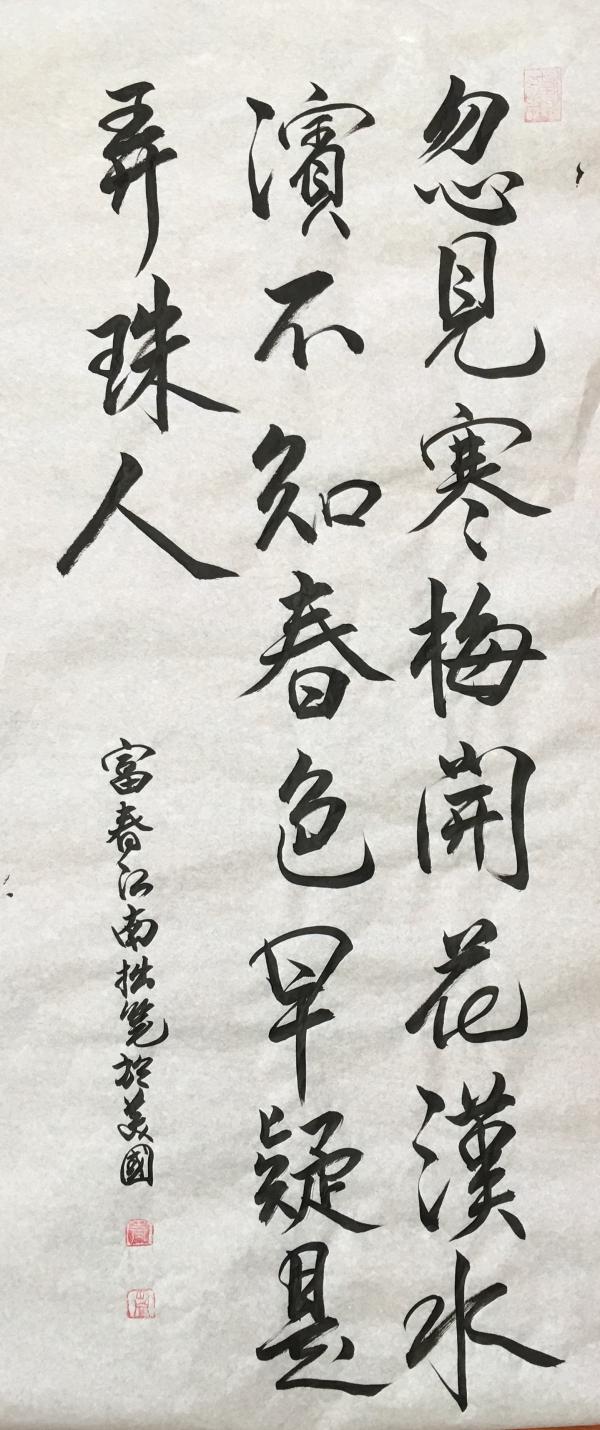 忽見寒梅開花漢水
濱不知春色早疑是
弄珠人
富春江南拙筆於美國